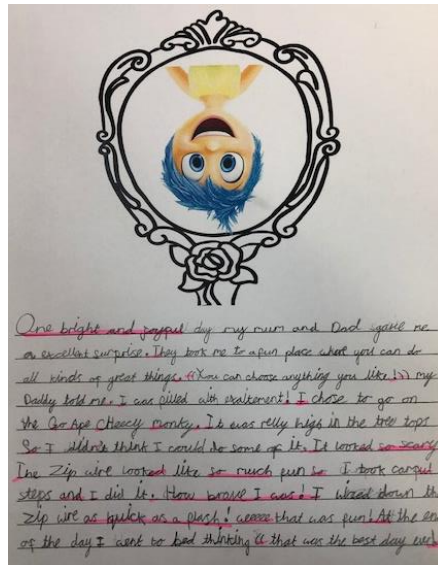 One bright and joyful day my mum and Dad gave me
an excellent surprise. They took me to a fun place where you can do
all kinds of great things. "You can choose anything you like!" my
Daddy told me. I was filled with exaltement! I chose to go on
the Go Ape cheacy monky. It was relly high in the tree tops
So I didn't think I could do some of it. It looked so scary
The Zip wire looked like so much fun so I took carful
steps and I did it. How brave I was! I wized down the
Zip wire as quick as a flash! weeeee that was fun! At the end
of the day I went to bed thinking " that was the best day ever!